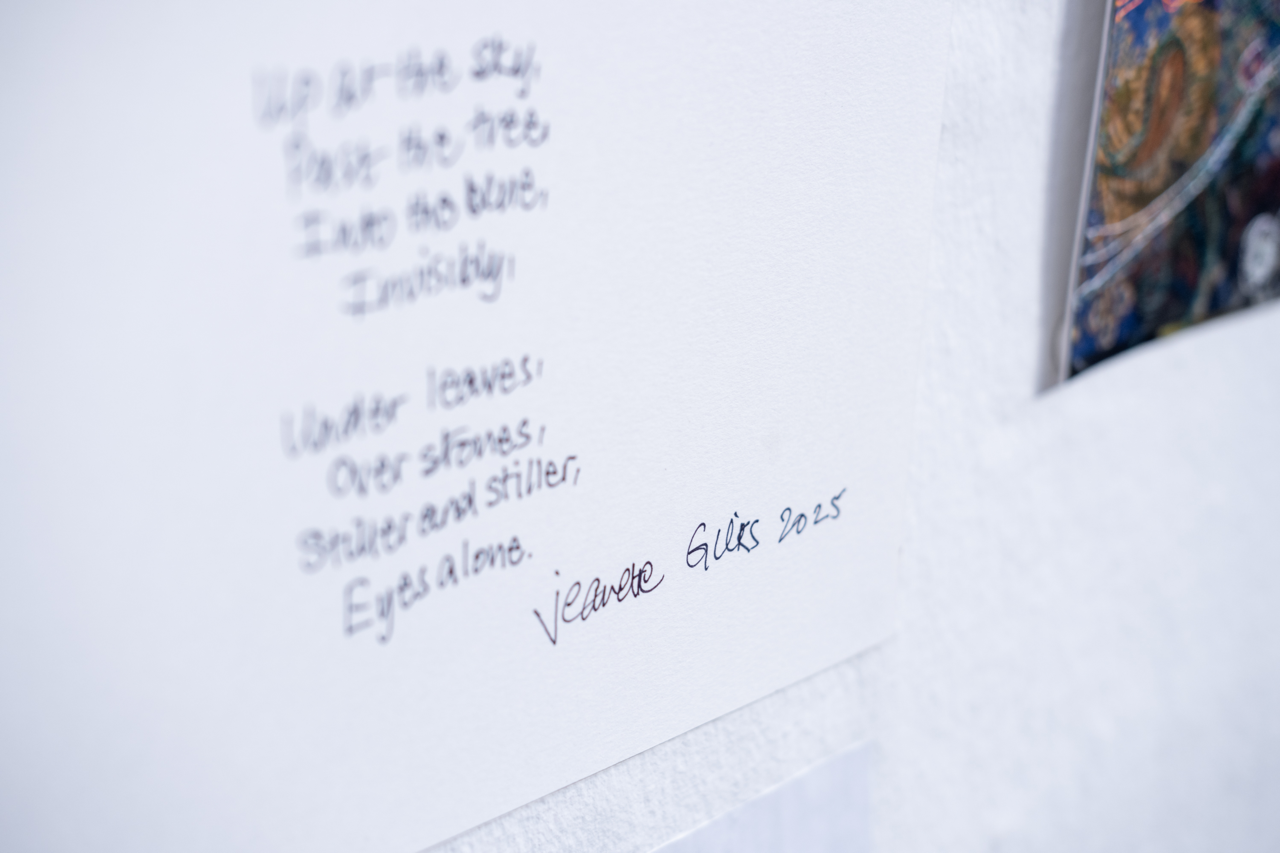 Up at the sky,
Past the tree,
Into the blue,
Invisibly,
Under leaves,
Over stones,
Stiller and stiller,
Eyes alone.
Jeanette Gilks 2025